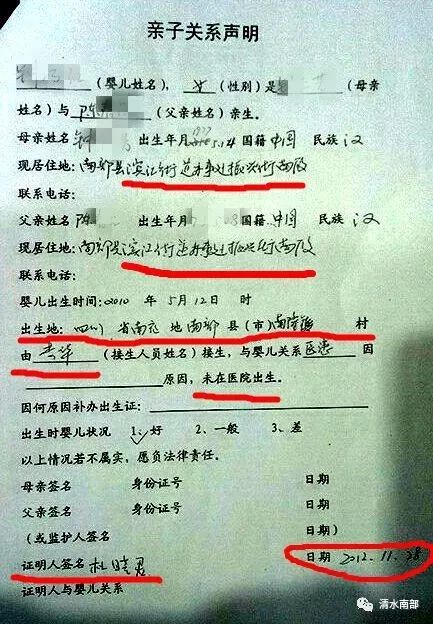 亲子关系声明
（婴儿姓名），女（性别）是（母亲
姓名）与陈（父亲姓名）亲生。
母亲姓名 钟 出生年月 5.14 国籍 中国 民族 汉
现居住地：南部县滨江街道办事处振兴街南段
联系电话：
父亲姓名 陈 出生年月 国籍 中国 民族 汉
现居住地：南部县滨江街道办事处振兴街南段
联系电话：
婴儿出生时间：2010 年 5月12日 时
出生地：四川 省南充 地 南部 县（市）南隆镇 村
由 （接生人员姓名）接生，与婴儿关系医患 因
原因，未在医院出生。
因何原因补办出生证：
出生时婴儿状况 1、好 2、一般 3、差
以上情况若不属实，愿负法律责任。
母亲签名 身份证号 日期
父亲签名 身份证号 日期
（或监护人签名 日期）
证明人签名 杜晓君 日期 2012.11.28
证明人与婴儿关系
清水南部